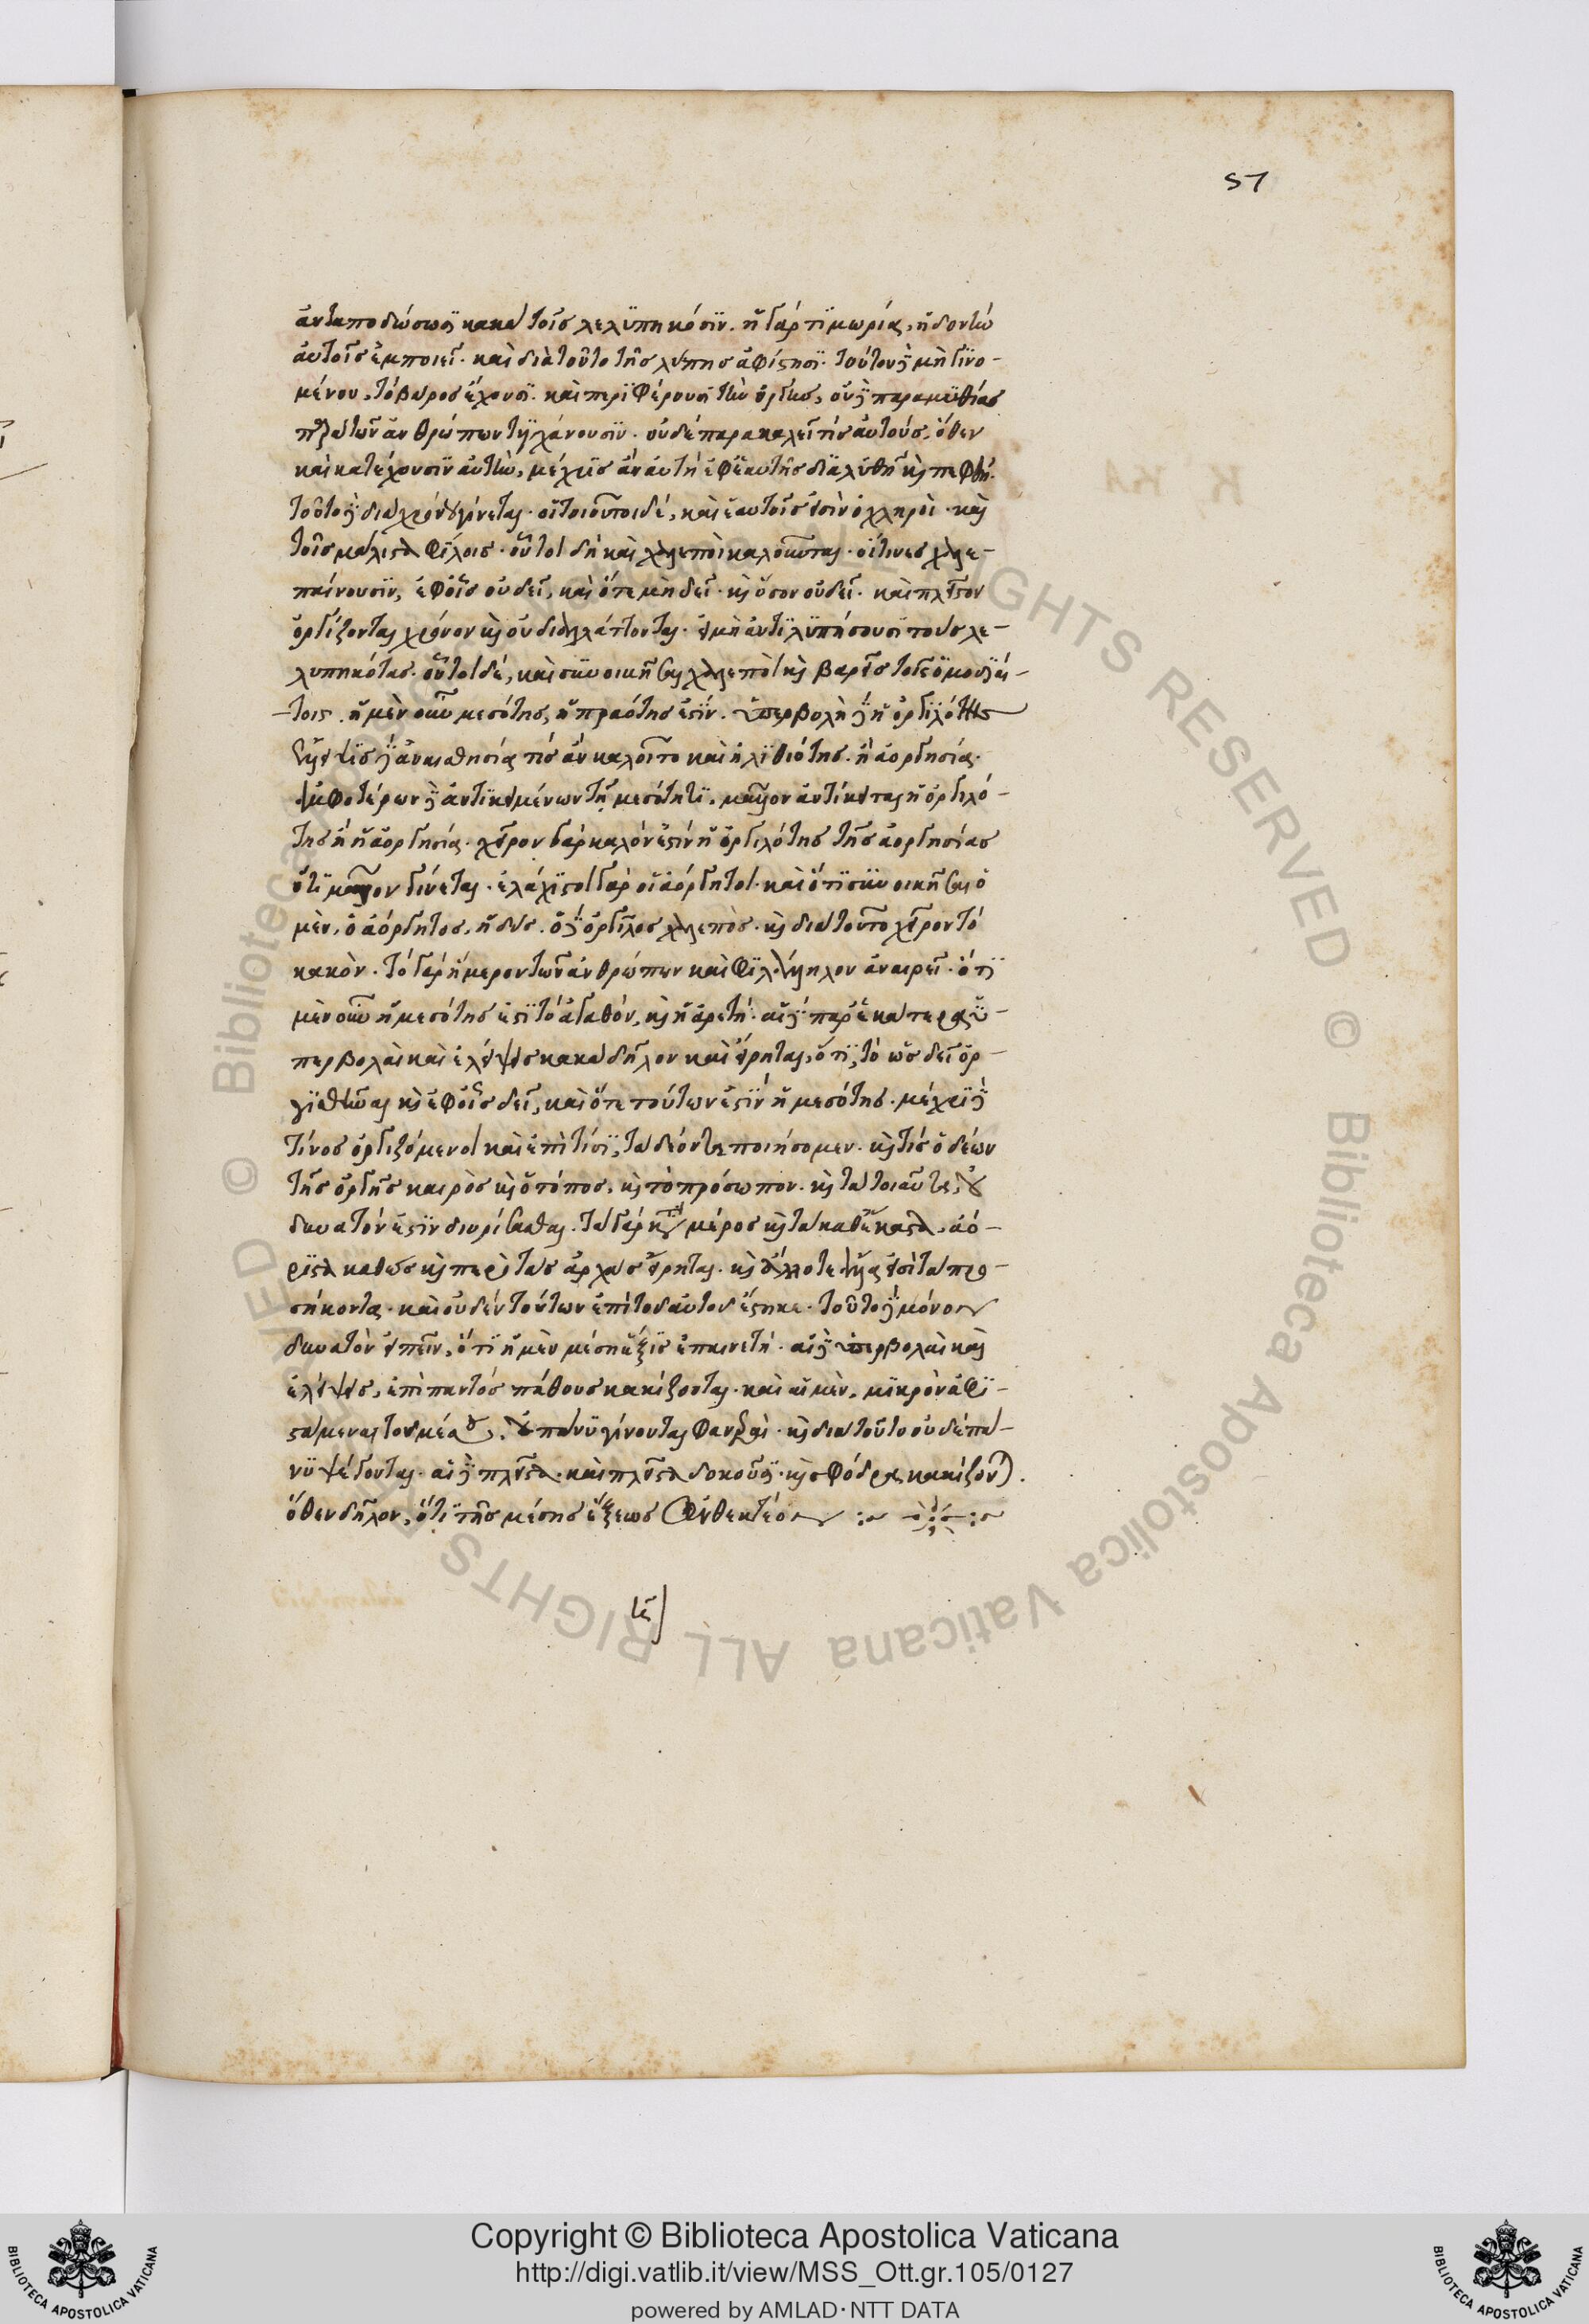 57
ἀνταποδώσωσϊ κακὰ τοῖς λελϋπηκόσϊν. ἡ γὰρ τϊμωρία, ἡδονὴν
αὐτοῖς ἐμποιεῖ. καὶ διὰ τοῦτο τῆς λύπης ἀφίστησϊ. τούτου δὲ μὴ γϊνο-
μένου, τὸ βάρος ἔχουσϊ. καὶ περϊφέρουσϊ τὴν ὀργὴν, οὐδὲ παραμϋθίας
παρὰ τῶν ἀνθρώπων τϋγχάνουσϊν. οὐδὲ παρακαλεῖ τίς αὐτούς, ὅθεν
καὶ κατέχουσϊν αὐτὴν, μέχρις ἂν αὐτὴ ἐφ' ἑαυτῆς δϊαλυθῇ καὶ πεφθῇ.
τοῦτο δὲ διὰ χρόνου γίνεται. οἱ τοιοῦτοι δέ, καὶ ἑαυτοῖς εἰσὶν ὀχληροὶ. καὶ
τοῖς μάλιστα φίλοις. οὗτοι δὴ καὶ χαλεποὶ καλοῦνται. οἵτινες χαλε-
παίνουσϊν, ἐφ' οἷς οὐ δεῖ, καὶ ὅτε μὴ δεῖ. καὶ ὅσον οὐ δεῖ. καὶ πλεῖστον
ὀργίζονται χρόνον καὶ οὐ διαλλάττονται. εἰ μὴ ἀντϊλϋπήσουσϊ τοὺς λε-
λυπηκότας. οὗτοι δέ, καὶ συνοικῆσαι χαλεποὶ καὶ βαρεῖς τοῖς ὁμοδϊαί-
-τοις. ἡ μὲν οὖν μεσότης, ἡ πραότης ἐστίν. ὑπερβολὴ δὲ ἡ ὀργϊλότης
ἔλλειψϊς δὲ ἀναισθησία τίς ἂν καλοῖτο καὶ ἠλϊθιότης. ἢ ἀοργησία.
ἀμφοτέρων δὲ ἀντϊκειμένων τῇ μεσότητϊ, μᾶλλον ἀντίκειται ἡ ὀργιλό-
της ἢ ἡ ἀοργησία. χεῖρον γὰρ κακόν ἐστιν ἡ ὀργιλότης τῆς ἀοργησίας
ὅτϊ μᾶλλον γίνεται. ἐλάχϊστοι γὰρ οἱ ἀόργητοι. καὶ ὅτϊ συνοικῆσαι ὁ
μὲν, ὁ ἀόργητος, ἡδύς. ὁ δὲ ὀργίλος χαλεπὸς. καὶ διὰ τοῦτο χεῖρον τὸ
κακὸν. τὸ γὰρ ἥμερον τῶν ἀνθρώπων καὶ φϊλάλληλον ἀναιρεῖ. ὅτϊ
μὲν οὖν ἡ μεσότης ἐστϊ τὸ ἀγαθόν, καὶ ἡ ἀρετή. αἱ δὲ παρ' ἑκάτερα ὑ-
περβολαὶ καὶ ἐλλείψεις κακὰ δῆλον καὶ εἴρηται, ὅτϊ, τὸ ὡς δεῖ ὀρ-
γϊσθῆναι καὶ ἐφ' οἷς δεῖ, καὶ ὅτε τούτων ἐστϊν ἡ μεσότης. μέχρϊ δὲ
τίνος ὀργιζόμενοι καὶ ἐπὶ τίσϊ, τὰ δέοντα ποιήσομεν. καὶ τίς ὁ δέων
τῆς ὀργῆς καιρὸς καὶ ὁ τόπος, καὶ τὸ πρόσωπον. καὶ τὰ τοιαῦτα, οὐ
δυνατόν ἐστϊν διορίσασθαι. τὰ γὰρ κατὰ μέρος καὶ τὰ καθ' ἕκαστα, ἀό-
ρϊστα καθὼς καὶ περὶ τὰς ἀρχὰς εἴρηται. καὶ ἄλλοτε ἄλλα εἰσὶ τὰ προ-
σήκοντα. καὶ οὐδὲν τούτων ἐπὶ τοῦ αὐτοῦ ἕστηκε. τοῦτο δὲ μόνον
δυνατὸν εἰπεῖν, ὅτϊ ἡ μὲν μέση ἕξϊς ἐπαινετή. αἱ δὲ ὑπερβολαὶ καὶ
ἐλλείψεις, ἐπὶ παντός πάθους κακίζονται. καὶ αἱ μὲν, μϊκρὸν ἀφϊ-
στάμεναι τοῦ μέσου, οὐ πάνϋ γίνονται φανεραὶ. καὶ διὰ τοῦτο οὐδὲ πά-
νϋ ψέγονται. αἱ δὲ πλεῖστα. καὶ πλεῖστα δοκοῦσϊ. καὶ σφόδρα κακίζονται.
ὅθεν δῆλον, ὅτϊ τῆς μέσης ἕξεως ἀνθεκτέον
Copyright © Biblioteca Apostolica Vaticana
http://digi.vatlib.it/view/MSS_Ott.gr.105/0127
powered by AMLAD·NTT DATA